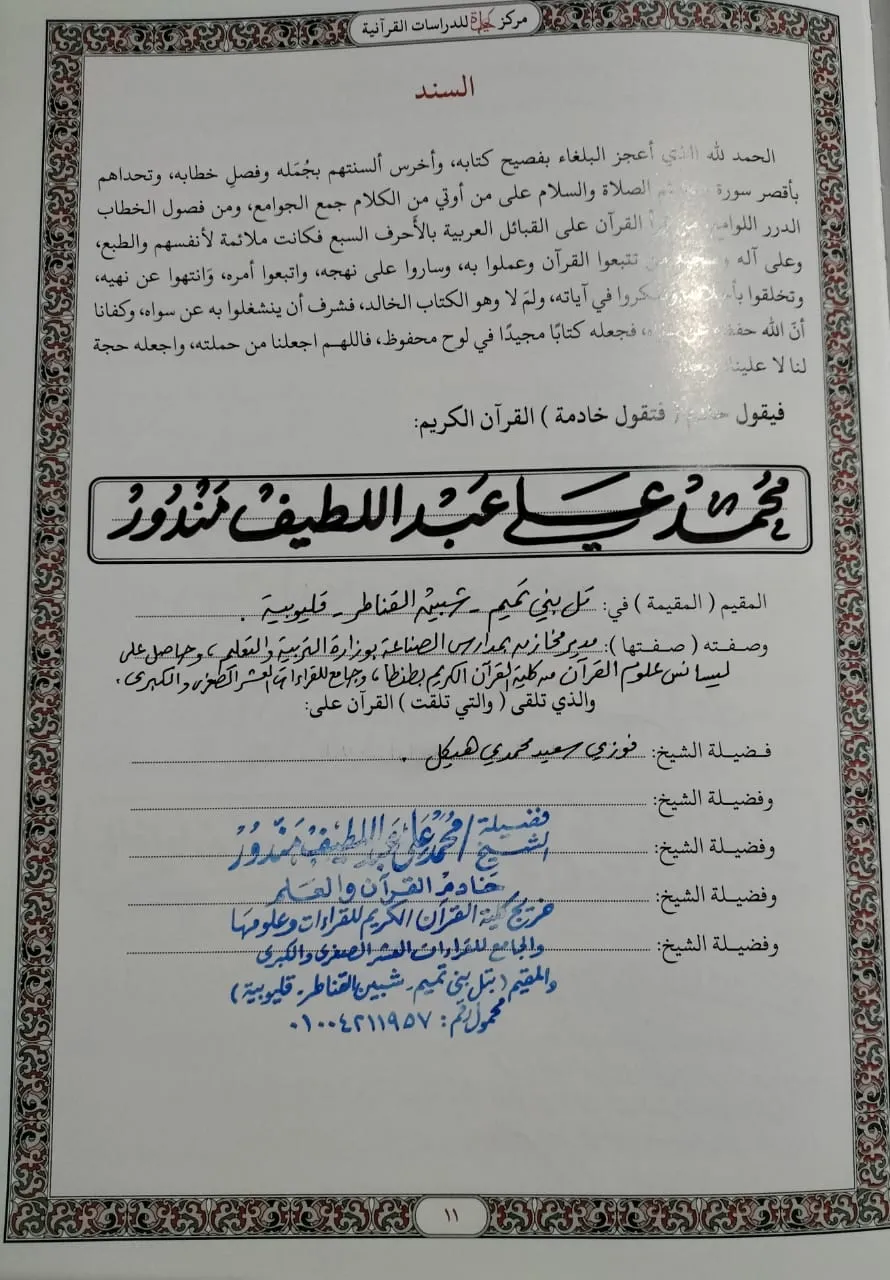 مركز للدراسات القرآنية
السند
الحمد لله الذي أعجز البلغاء بفصيح كتابه، وأخرس ألسنتهم بجُمَله وفصلِ خطابه، وتحداهم
بأقصر سورة الصلاة والسلام على من أوتي من الكلام جمع الجوامع، ومن فصول الخطاب
الدرر اللوامع القرآن على القبائل العربية بالأَحرف السبع فكانت ملائمة لأنفسهم والطبع،
وعلى آله تتبعوا القرآن وعملوا به، وساروا على نهجه، واتبعوا أمره، وَانتهوا عن نهيه،
وتخلقوا في آياته، ولمَ لا وهو الكتاب الخالد، فشرف أن ينشغلوا به عن سواه، وكفانا
أنّ الله فجعله كتابًا مجيدًا في لوح محفوظ، فاللهم اجعلنا من حملته، واجعله حجة
لنا لا علينا
فيقول ( فتقول خادمة ) القرآن الكريم:
محمد علي عبد اللطيف مندور
المقيم ( المقيمة ) في: تل بني تميم - شبين القناطر - قليوبية .
وصفته ( صفتها ): مدير مخازن بمدارس الصناعة بوزارة التربية والتعليم ، وحاصل على
ليسانس علوم القرآن من كلية القرآن الكريم بطنطا ، وجامع للقراءات العشر الصغرى والكبرى .
والذي تلقى ( والتي تلقت ) القرآن على:
فـضيلـة الشيخ: فوزي سعيد محمدي هيكل .
وفضيـلـة الشيخ:
وفضيـلـة الشيخ:
وفضيـلـة الشيخ:
وفضيـلـة الشيخ:
فضيلة الشيخ / محمد على عبد اللطيف مندور
خادم القرآن والعلم
خريج كلية القرآن الكريم للقراءات وعلومها
والجامع للقراءات العشر الصغرى والكبرى
والمقيم ( بتل بنى تميم - شبين القناطر - قليوبية )
محمول رقم : ٠١٠٠٤٢١١٩٥٧
١١